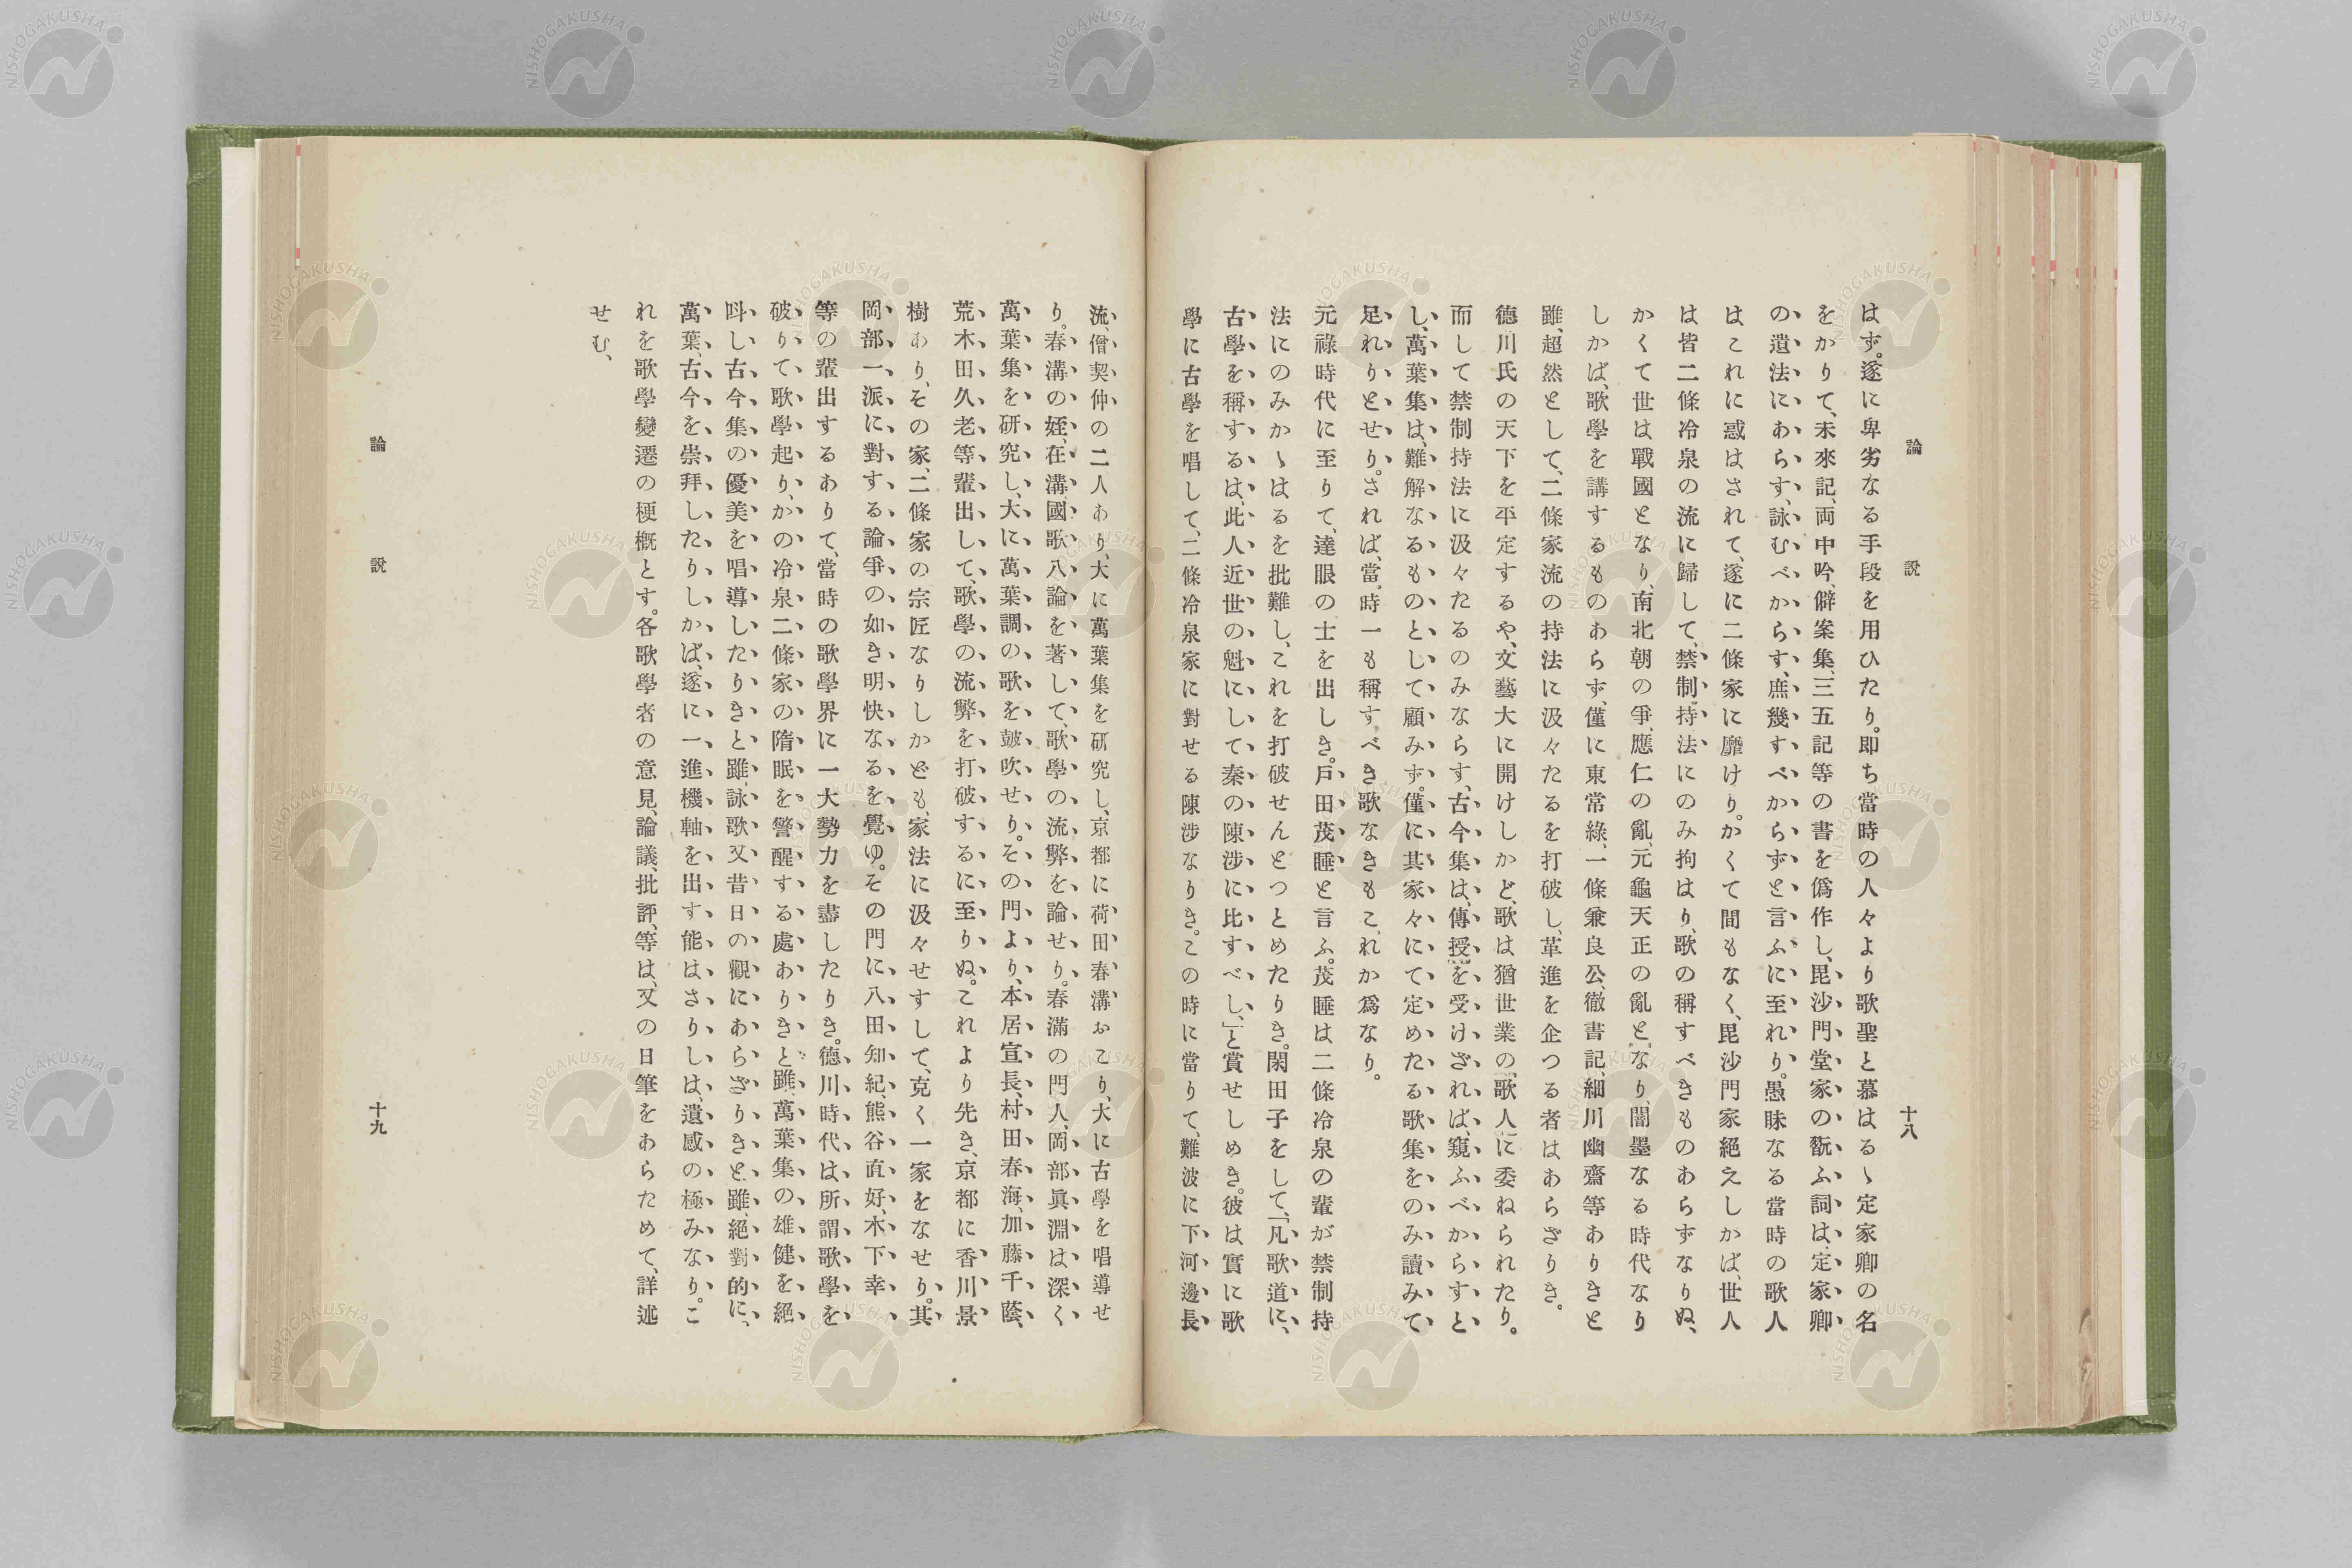 論說
十八
はず。遂に卑劣なる手段を用ひたり。即ち當時の人々より歌聖と慕はるゝ定家卿の名
をかりて、未來記、両中吟、僻案集、三五記等の書を僞作し、毘沙門堂家の翫ふ詞は、定家卿
の遺法にあらす、詠むべからす、庶幾すべからずと言ふに至れり。愚昧なる當時の歌人
はこれに惑はされて、遂に二條家に靡けり。かくて間もなく、毘沙門家絕えしかば、世人
は皆二條冷泉の流に歸して、禁制持法にのみ拘はり、歌の稱すべきものあらずなりぬ、
かくて世は戰國となり、南北朝の爭、應仁の亂、元龜天正の亂となり、闇墨なる時代なり
しかば、歌學を講するものあらず、僅に東常綠、一條兼良公、徹書記、細川幽齋等ありきと
雖、超然として、二條家流の持法に汲々たるを打破し、革進を企つる者はあらざりき。
德川氏の天下を平定するや、文藝大に開けしかど、歌は猶世業の、歌人に委ねられたり。
而して禁制持法に汲々たるのみならす、古今集は、傳授を受けざれば、窺ふべからすと
し、萬葉集は、難解なるものとして顧みず。僅に其家々にて定めたる歌集をのみ讀みて
足れりとせり。されば、當時一も稱すべき歌なきもこれか爲なり。
元祿時代に至りて、達眼の士を出しき。戶田茂睡と言ふ。茂睡は二條冷泉の輩が禁制持
法にのみかゝはるを批難し、これを打破せんとつとめたりき。閑田子をして、「凡歌道に、
古學を稱するは、此人近世の魁にして秦の陳涉に比すべし、」と賞せしめき。彼は實に歌
學に古學を唱して、二條冷泉家に對せる陳涉なりき。この時に當りて、難波に下河邊長
流、僧契仲の二人あり、大に萬葉集を研究し、京都に荷田春溝おこり、大に古學を唱導せ
り。春溝の姪、在溝、國歌八論を著して、歌學の流弊を論せり。春滿の門人、岡部眞淵は深く
萬葉集を研究し、大に萬葉調の歌を鼓吹せり。その門より、本居宣長、村田春海、加藤千蔭、
荒木田久老等輩出して、歌學の流弊を打破するに至りぬ。これより先き、京都に香川景
樹あり、その家、二條家の宗匠なりしかども、家法に汲々せすして、克く一家をなせり。其
岡部一派に對する論爭の如き明快なるを覺ゆ。その門に、八田知紀、熊谷直好、木下幸
等の輩出するありて、當時の歌學界に一大勢力を盡したりき。德川時代は、所謂歌學を
破りて歌學起り、かの冷泉二條家の隋眠を警醒する處ありきと雖、萬葉集の雄健を絕
叫し、古今集の優美を唱導したりきと雖、詠歌又昔日の觀にあらざりきと雖、絕對的に、
萬葉、古今を崇拜したりしかば、遂に一進機軸を出す能はさりしは、遺感の極みなり。こ
れを歌學變遷の梗概とす。各歌學者の意見、論議、批評、等は、又の日筆をあらためて、詳述
せむ、
論說
十九